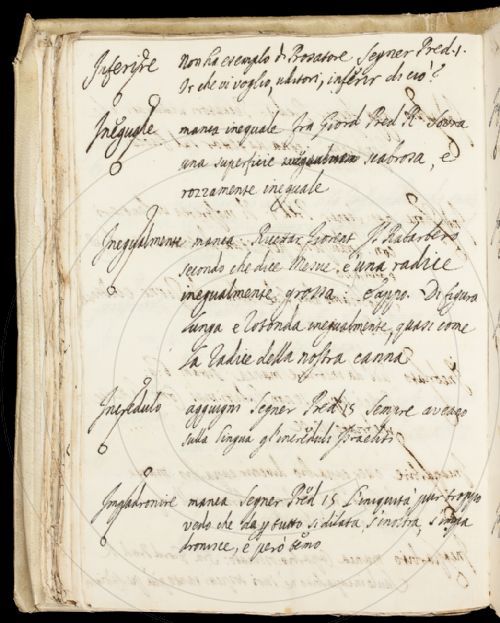 Inferire Non ha esempio di Prosatore Segner Pred. 1.
Or che vi voglio, uditori, inferir di ciò?
Ineguale manca inequale fra Giord Pred R. Sovra
una superficie scabrosa, e
rozzamente inequale
Inegualmente manca Ricettar Fiorent Il Rabarbero
secondo che dice Mesue, è una radice
inegualmente grossa E appo. Di figura
lunga e rotonda inegualmente, quasi come
la radice della nostra canna
Incredulo aggiugni Segner Pred 15 Sempre aveano
sulla lingua gl'increduli Israeliti
Impadronire manca Segner Pred 15 L'iniquità pur troppo
vedo che da p tutto si dilata, s'inoltra, s'impa
dronisce, e però temo